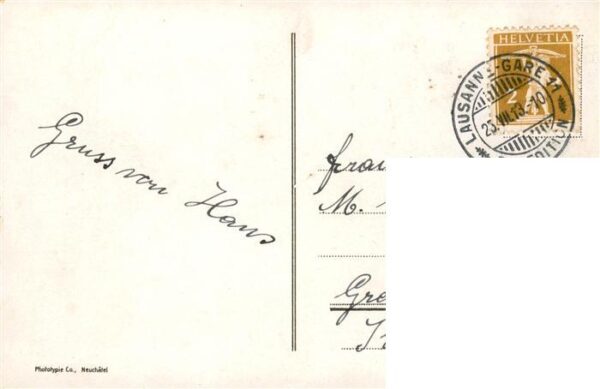 Gruss von Hans
HELVETIA
2
LAUSANNE-GARE 11
25.VII.13.-10
M.
Phototypie Co., Neuchâtel